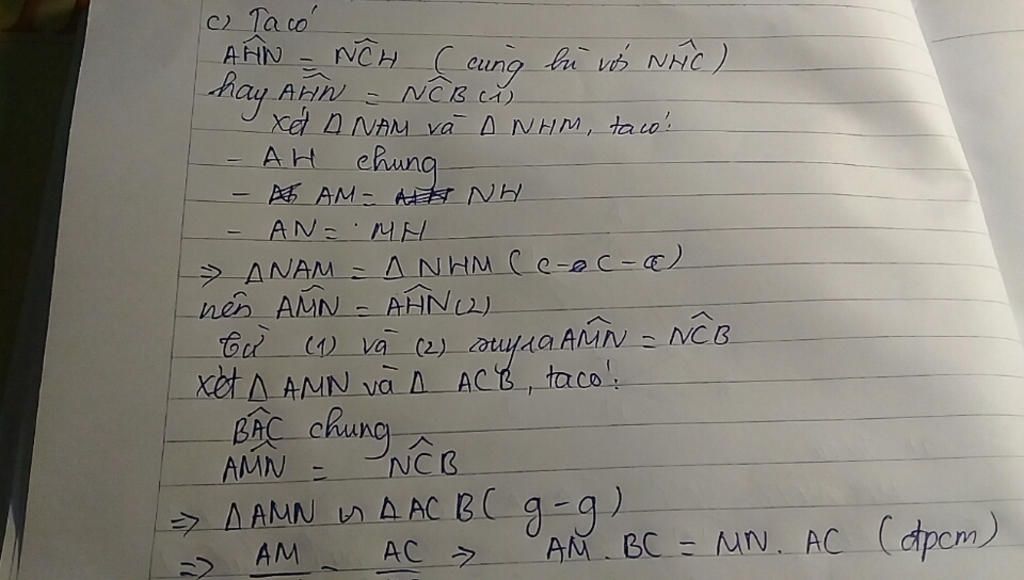 c) Ta có
AĤN = NĈH (cùng bù với NĤC)
hay AĤN = NĈB (1)
xét Δ NAM và Δ NHM, ta có:
- AH chung
- AM = NH
- AN = MH
⇒ Δ NAM = Δ NHM (c-c-c)
nên AM̂N = AĤN (2)
từ (1) và (2) suy ra AM̂N = NĈB
xét Δ AMN và Δ ACB, ta có:
BÂC chung
AM̂N = NĈB
⇒ Δ AMN ∽ Δ ACB (g-g)
⇒ AM = AC ⇒ AM . BC = MN . AC (đpcm)